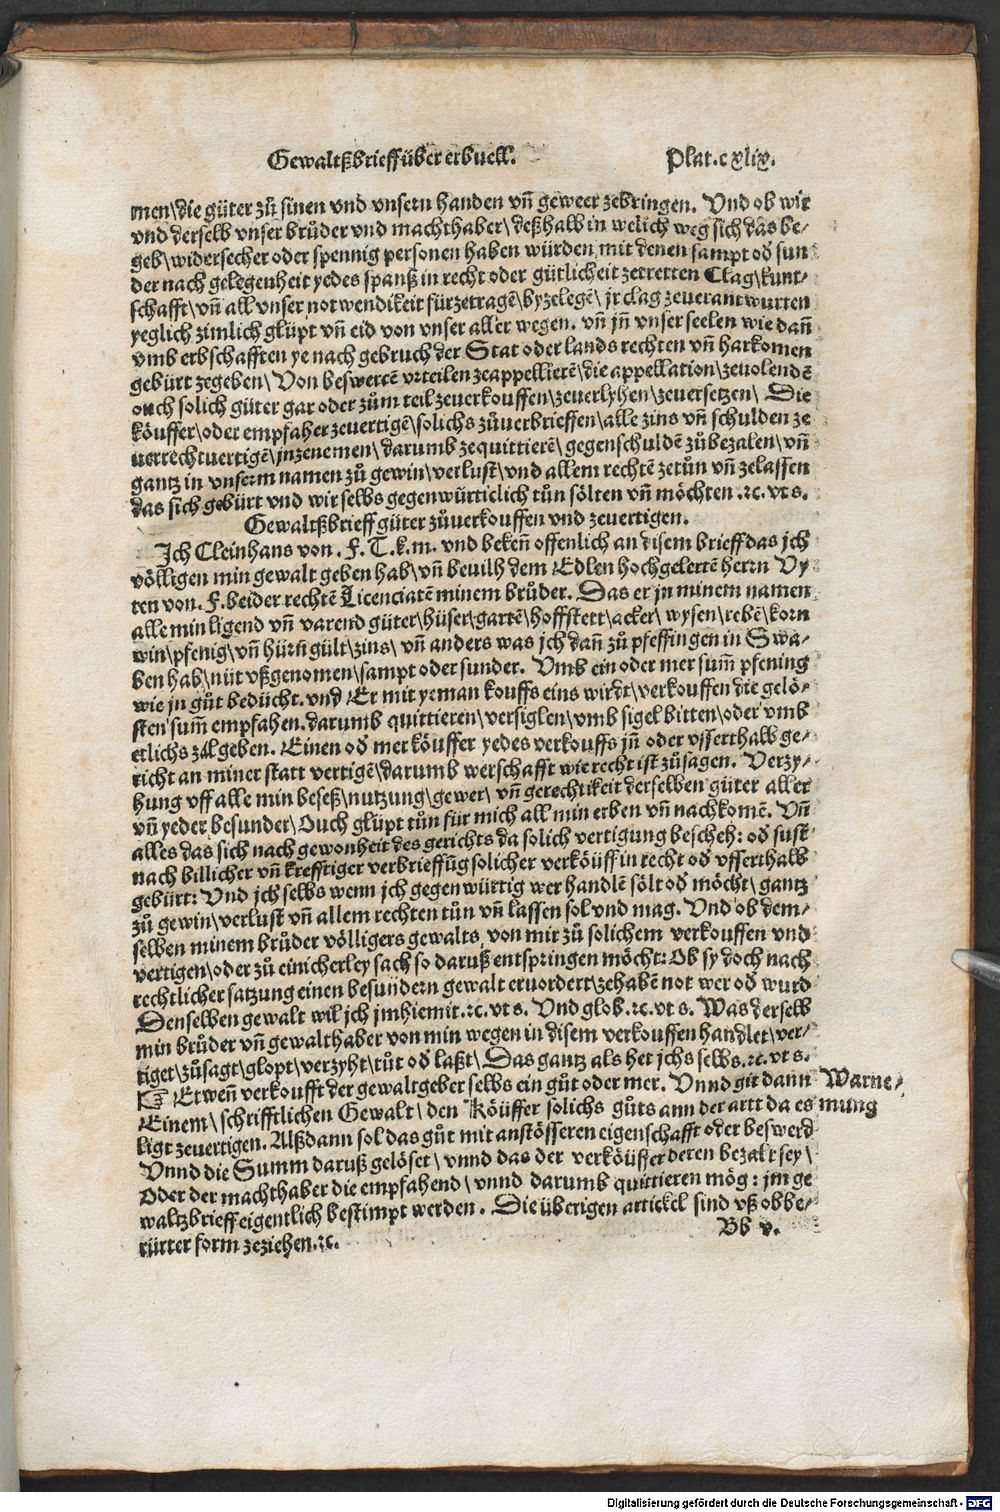 Gewaltßbrieff über erbuell. Plat.cxlix.
men\die güter zů sinen vnd vnsern handen vñ geweer zebringen. Vnd ob wir
vnd derselb vnser brůder vnd machthaber\deßhalb in welich weg sich das be⸗
geb\widersecher oder spennig personen haben würden mit denen sampt oď sun
der nach gelegenheit yedes spanß in recht oder gütlicheit zetretten Clag\kunt⸗
schafft\vñ all vnser notwendikeit fürzetragē\byzelegē\jr clag zeuerantwurten
yeglich zimlich glüpt vñ eid von vnser aller wegen. vñ jñ vnser seelen wie dañ
vmb erbschafften ye nach gebruch der Stat oder lands rechten vñ harkomen
gebürt zegeben\Von beswertē vrteilen zeappellierē\die appellation\zeuolendē
ouch solich güter gar oder zům teil zeuerkouffen\zeuerlyhen\zeuersetzen\ Die
köuffer\oder empfaher zeuertigē\solichs zůuerbrieffen\alle zins vñ schulden ze
uerrechtuertigē\jnzenemen\darumb zequittierē\gegenschuldē zůbezalen\vñ
gantz in vnserm namen zů gewin\verlust\vnd allem rechtē zetůn vñ zelassen
das sich gebürt vnd wir selbs gegenwürticlich tůn sölten vñ möchten .ꝛc. vt s.
Gewaltßbrieff güter zůuerkouffen vnd zeuertigen.
Jch Cleinhans von .F.T.k.m. vnd bekeñ offenlich an disem brieff das jch
völligen min gewalt geben hab\vñ beuilh dem Edlen hochgelertē herrn Vy
ten von .F.beider rechtē Licenciatē minem brůder. Das er jn minem namen
alle min ligend vñ varend güter\hüser\gartē\hoffstett\acker\wysen\rebē\korn
win\pfenig\vñ hürñ gült\zins\ vñ anders was jch dañ zů pfeffingen in Swa⸗
ben hab\nüt vßgenomen\sampt oder sunder. Vmb ein oder mer sum̄ pfening
wie jn gůt bedücht.vnd Er mit yeman kouffs eins wirdt\verkouffen die gelö⸗
sten sum̄ empfahen.darumb quittieren\versiglen\vmb sigel bitten\oder vmb
etlichs zil geben. Einen oď mer köuffer yedes verkouffs jñ oder vsserthalb ge⸗
richt an miner statt vertigē\darumb werschafft wie recht ist zůsagen. Verzy⸗
hung vff alle min beseß\nutzung\gewer\ vñ gerechtikeit derselben güter aller
vñ yeder besunder\Ouch glüpt tůn für mich all min erben vñ nachkomē. Vñ
alles das sich nach gewonheit des gerichts da solich vertigung bescheh: oď sust
nach billicher vñ krefftiger verbrieffūg solicher verköuff in recht oď vsserthalb
gebürt: Vnd jch selbs wenn jch gegenwürtig wer handlē sölt oď möcht\gantz
zů gewin\verlust vñ allem rechten tůn vñ lassen sol vnd mag. Vnd ob dem⸗
selben minem brůder völligers gewalts von mir zů solichem verkouffen vnd
vertigen\oder zů einicherley sach so daruß entspringen möcht: Ob sy doch nach
rechtlicher satzung einen besundern gewalt eruordert\zehabē not wer oď wurd
Denselben gewalt wil jch jm hiemit .ꝛc. vt s. Vnd glob.ꝛc.vt s. Was derselb
min brůder vñ gewalthaber von min wegen in disem verkouffen handlet\ver⸗
tiget\zůsagt\glopt\verzyht\tůt oď laßt\ Das gantz als het jchs selbs.ꝛc.vt s.
☞ Etweñ verkoufft der gewaltgeber selbs ein gůt oder mer. Vnnd git dann
Einem\schrifftlichen Gewalt\den Köuffer solichs gůts ann der artt da es
ligt zeuertigen. Alßdann sol das gůt mit anstössseren eigenschafft oder beswerd
Vnnd die Summ daruß gelöset\vnnd das der verköuffer deren bezalt sey\
Oder der machthaber die empfahend\vnnd darumb quittieren mög: jm ge
waltzbrieff eigentlich bestimpt werden. Die überigen artickel sind vß obbe⸗
rürter form zeziehen.ꝛc.
Warne⸗
mung
Bb v.
Digitalisierung gefördert durch die Deutsche Forschungsgemeinschaft - DFG